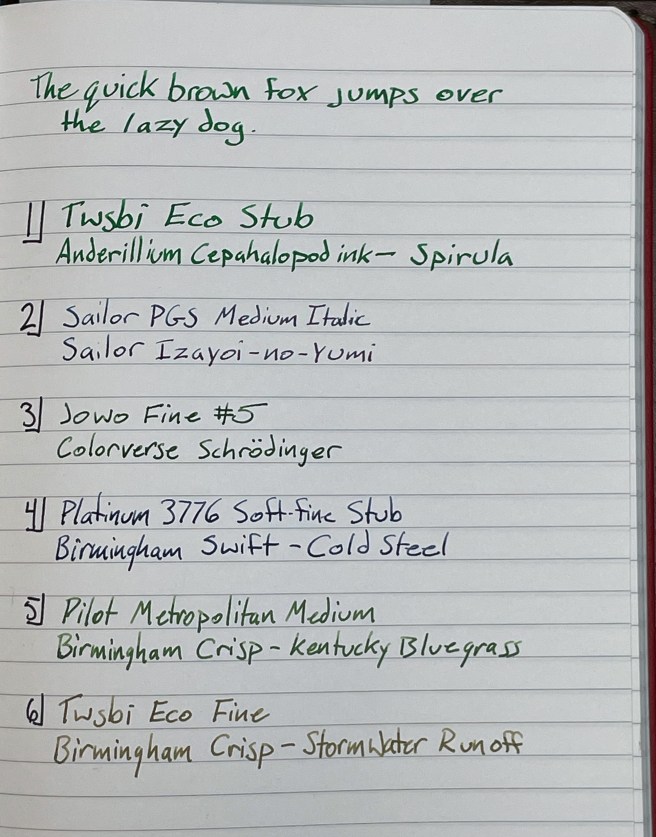 The quick brown fox jumps over
the lazy dog.
1) Twsbi Eco Stub
Anderillium Cepahalopod ink - Spirula
2) Sailor PGS Medium Italic
Sailor Izayoi-no-Yumi
3) Jowo Fine #5
Colorverse Schrödinger
4) Platinum 3776 Soft-fine Stub
Birmingham Swift - Cold Steel
5) Pilot Metropolitan Medium
Birmingham Crisp - Kentucky Bluegrass
6) Twsbi Eco Fine
Birmingham Crisp - StormWater Runoff